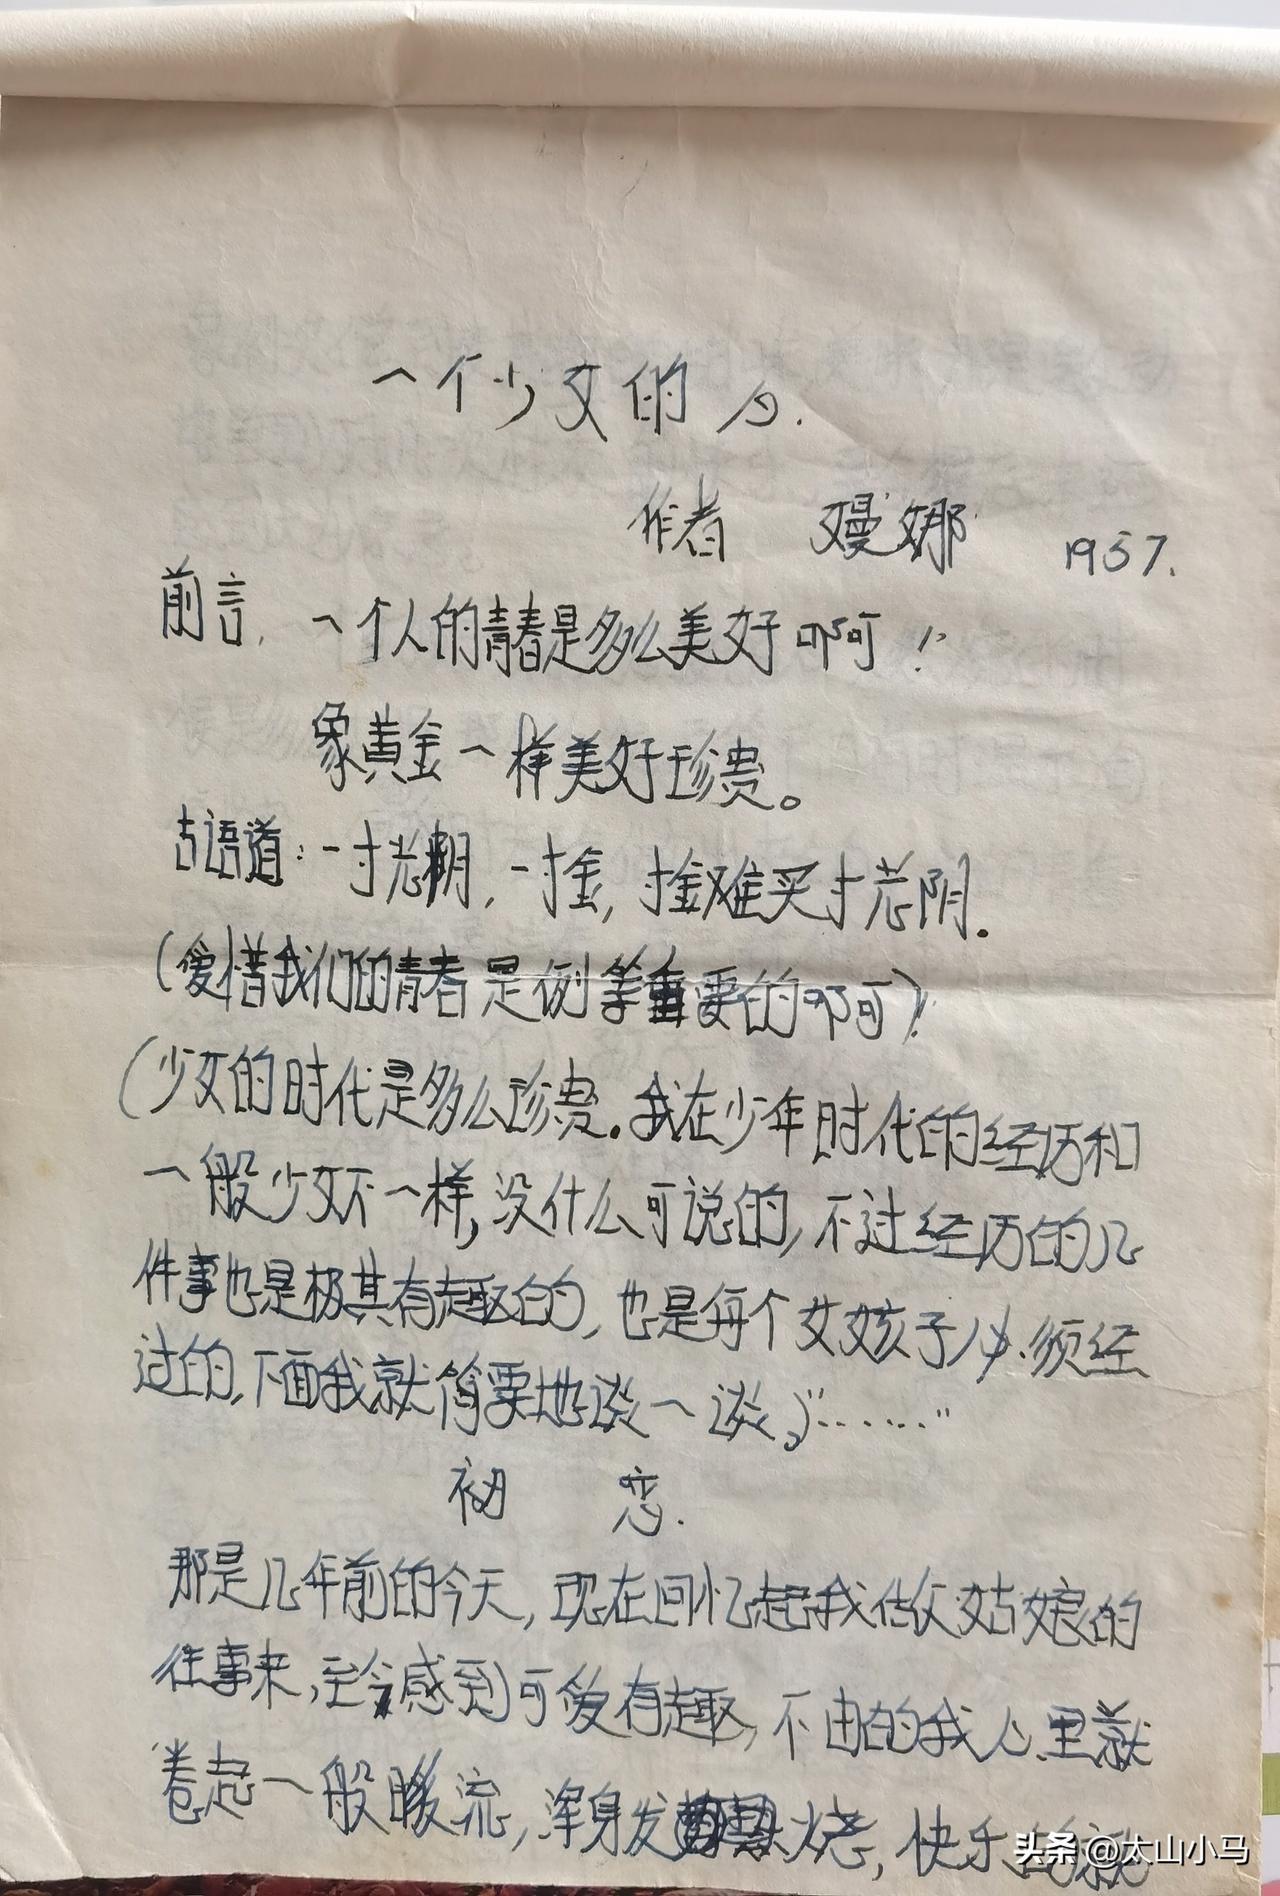 一个少女的
作者 嫚娜 1957.
前言, 一个人的青春是多么美好啊!
象黄金一样美好珍贵。
古语道:一寸光阴,一寸金,寸金难买寸光阴.
(爱惜我们的青春是例等重要的啊)!
(少女的时代是多么珍贵.我在少年时代的经历和
一般少女不一样,没什么可说的,不过经历的几
件事也是极其有趣的,也是每个女孩子必须经
过的,下面我就简要地谈一谈,)“……”
初 恋.
那是几年前的今天,现在回忆起我做姑娘的
往事来,至今感到可爱有趣,不由的我心里就
卷起一般暖流,浑身发烧,快乐的就
头条 @太山小马